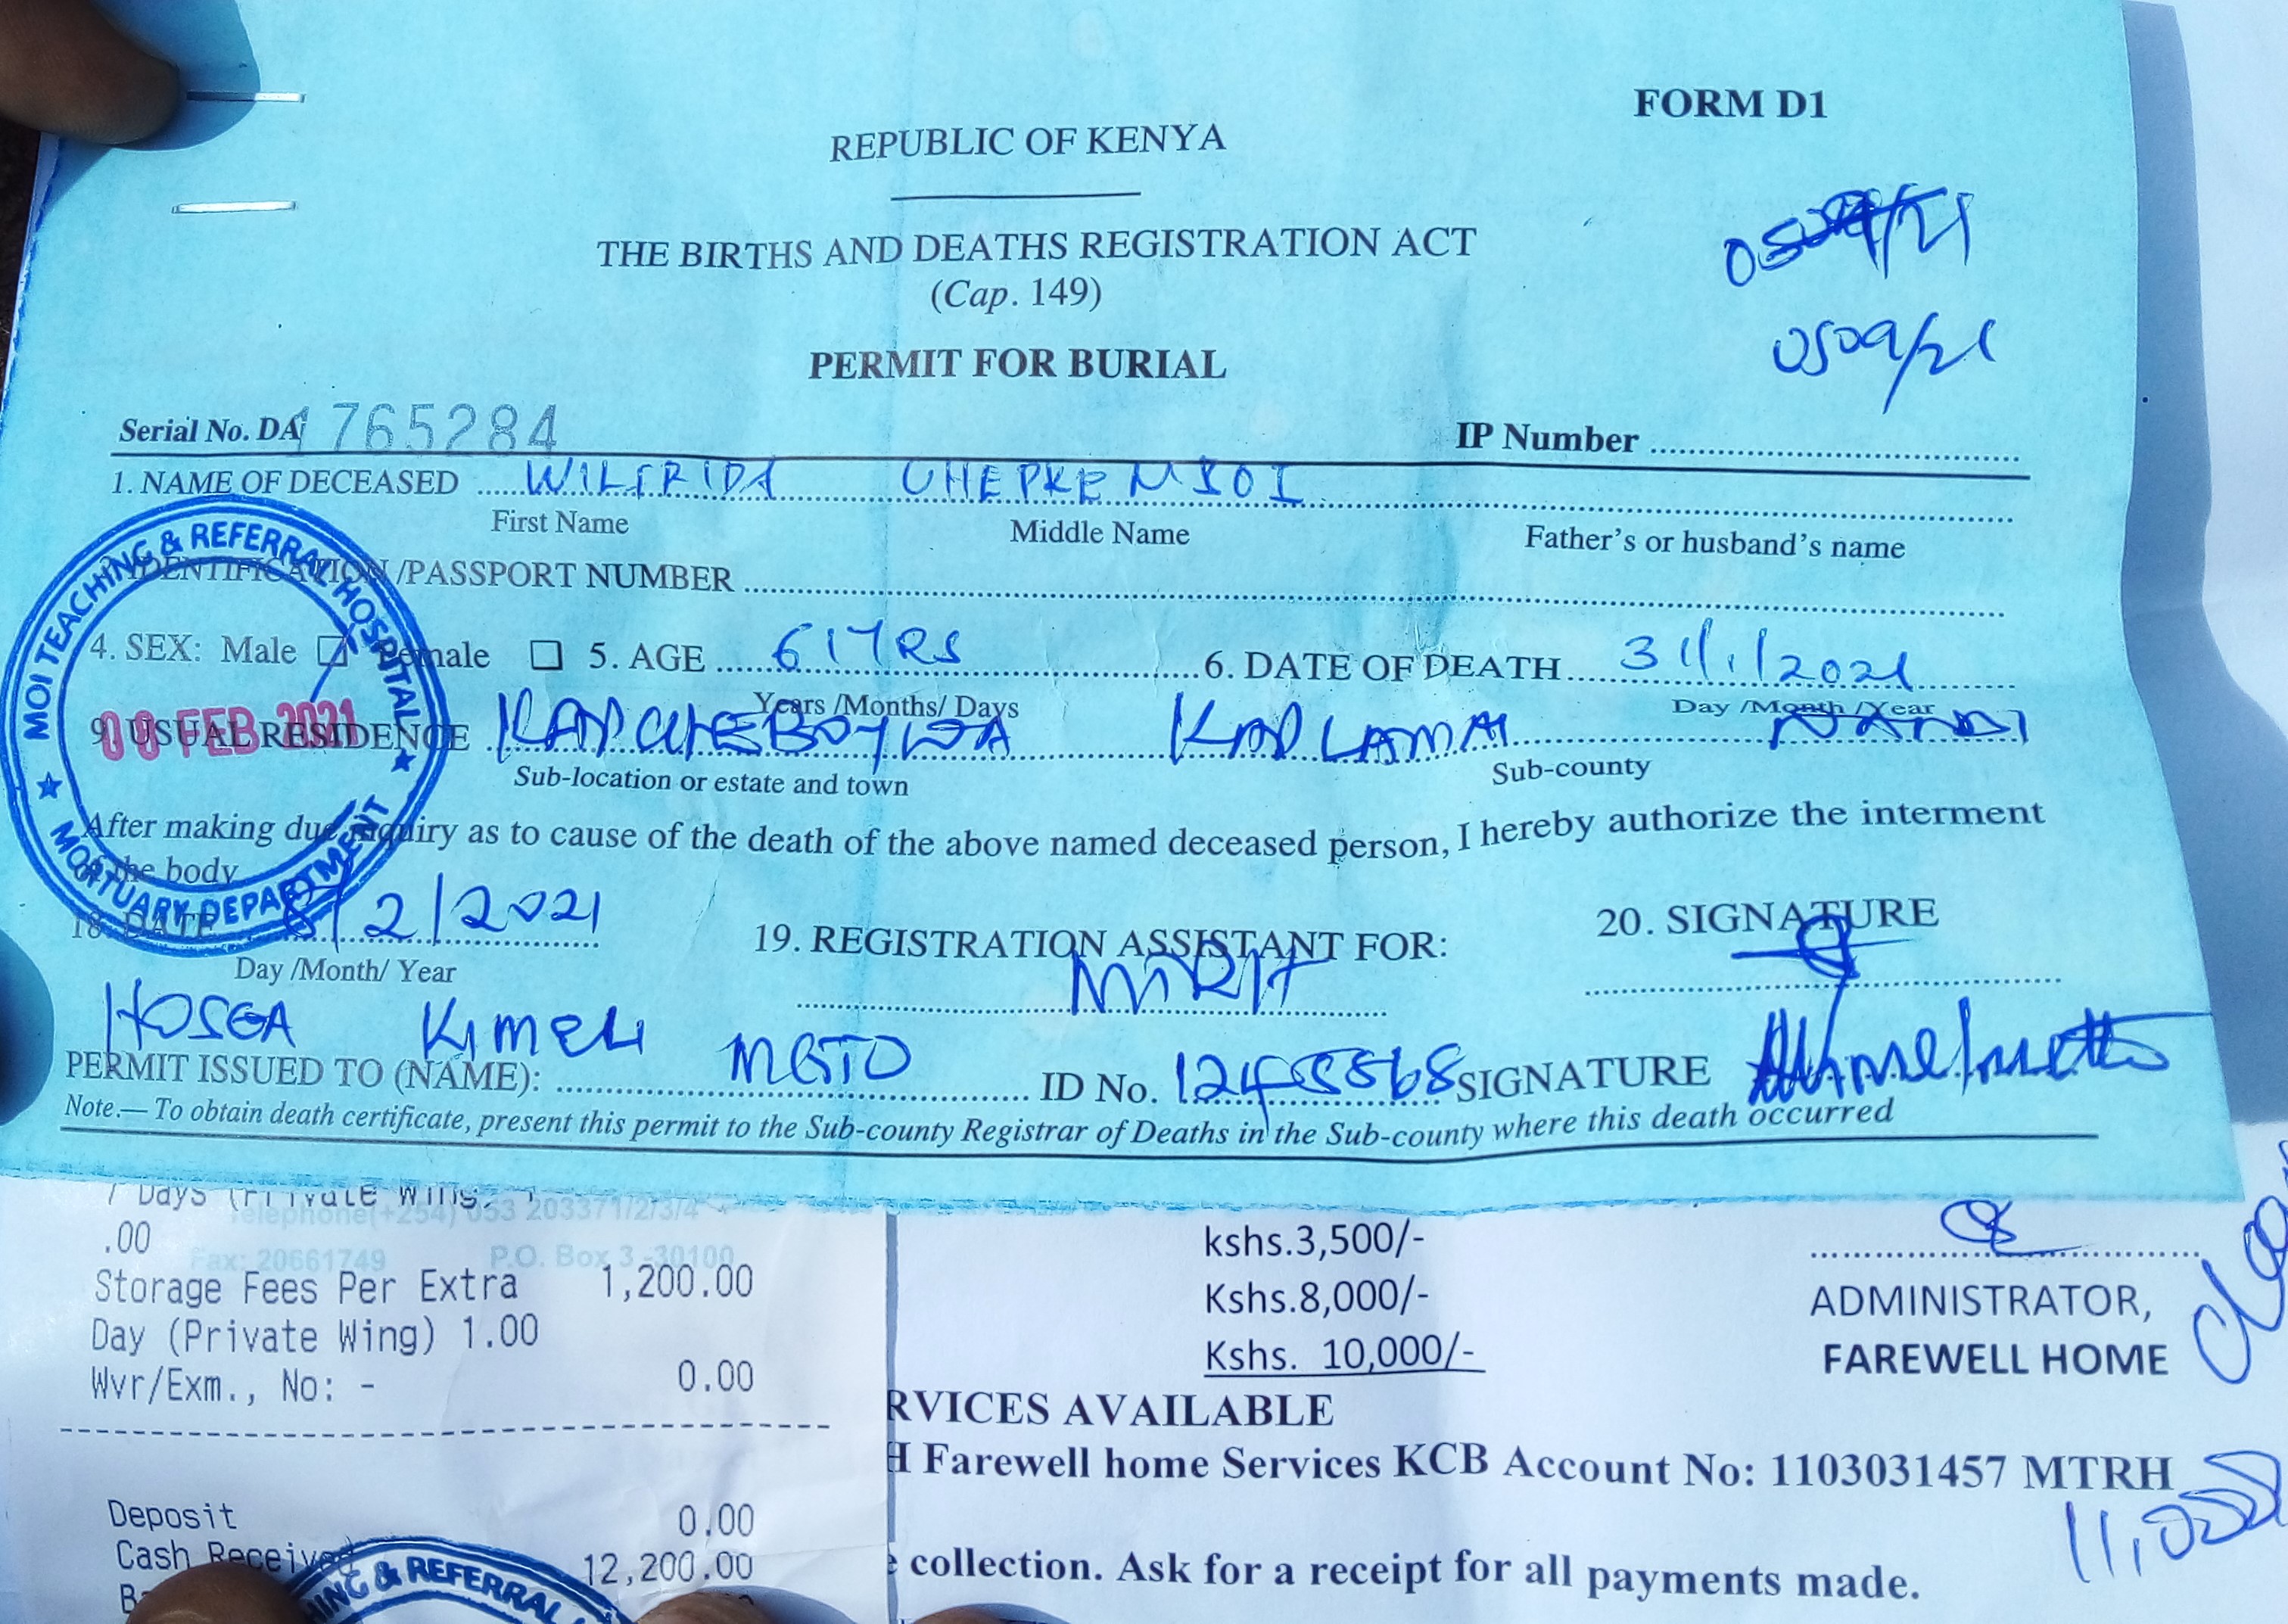 FORM D1
REPUBLIC OF KENYA
THE BIRTHS AND DEATHS REGISTRATION ACT
(Cap. 149)
0509/21
PERMIT FOR BURIAL
Serial No. DA 1765284
IP Number
1. NAME OF DECEASED WILFRIDA CHEPKEMBOI
First Name Middle Name Father's or husband's name
IDENTIFICATION /PASSPORT NUMBER
4. SEX: Male Female 5. AGE 61YRS 6. DATE OF DEATH 31/1/2021
Years /Months/ Days Day /Month /Year
9. USUAL RESIDENCE KAPCHEBOYWA KAPLAMAI NANDI
Sub-location or estate and town Sub-county
After making due inquiry as to cause of the death of the above named deceased person, I hereby authorize the interment
of the body
18. DATE 8/2/2021 19. REGISTRATION ASSISTANT FOR: 20. SIGNATURE
Day /Month/ Year MTRH
HOSEA KIMELI METO
PERMIT ISSUED TO (NAME): ID No. SIGNATURE
Note.— To obtain death certificate, present this permit to the Sub-county Registrar of Deaths in the Sub-county where this death occurred
MOI TEACHING & REFERRAL HOSPITAL
08 FEB 2021
MORTUARY DEPARTMENT
7 Days (Private Wing,
.00
Telephone(+254) 053 203371/2/3/4
Fax: 20661749 P.O. Box 3-30100
Storage Fees Per Extra 1,200.00
Day (Private Wing) 1.00
Wvr/Exm., No: - 0.00
Deposit 0.00
Cash Received 12,200.00
& REFERRAL
kshs.3,500/-
Kshs.8,000/-
Kshs. 10,000/-
ADMINISTRATOR,
FAREWELL HOME
RVICES AVAILABLE
H Farewell home Services KCB Account No: 1103031457 MTRH
collection. Ask for a receipt for all payments made.